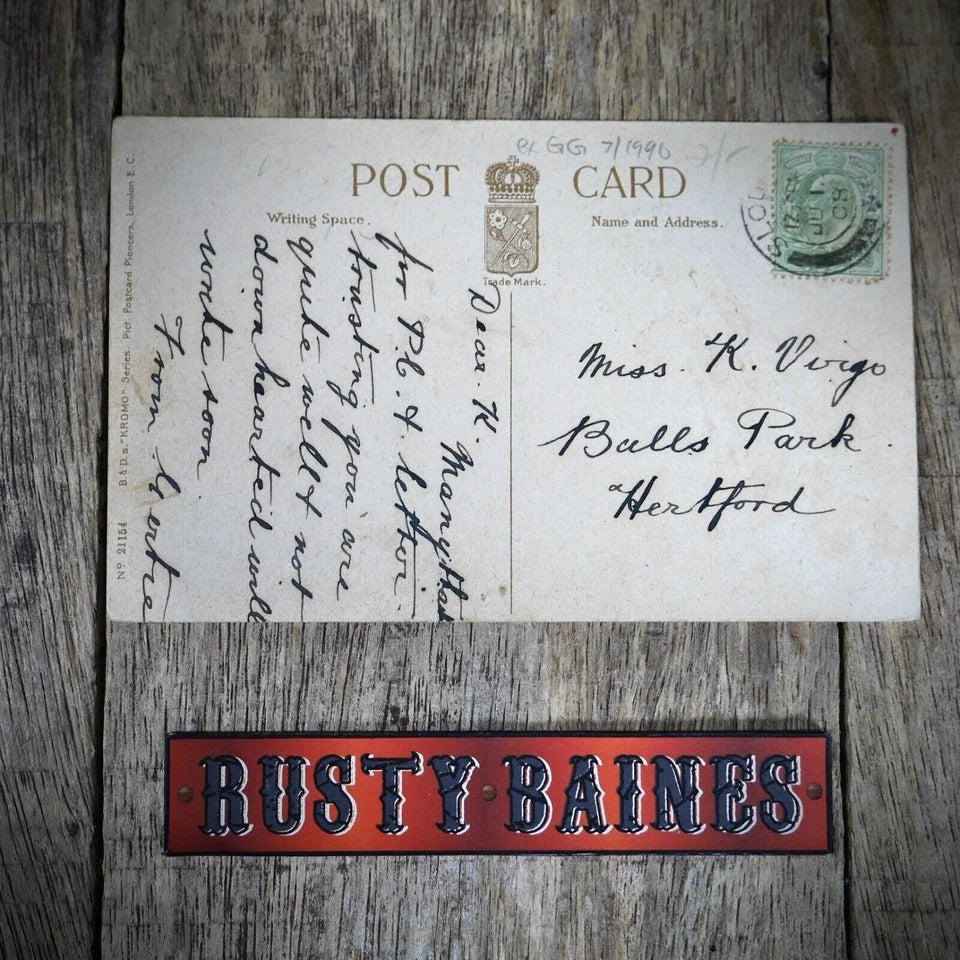 ex GG 7/1990
POST CARD
Writing Space.
Name and Address.
Trade Mark.
Dear K.
Many thks
for P.C. & letter.
trusting you are
quite well & not
downhearted will
write soon.
From Gertie
Miss. K. Virgo
Balls Park.
Hertford
SLOU
JU 1
09
No 21154 B & D.s. "KROMO" Series. Pict. Postcard Pioneers, London E.C.
RUSTY BAINES